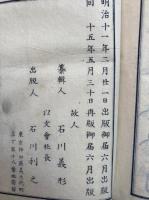 明治十一年二月廿一日出版御届六月出版
同 十五年五月三十日再版御届六月出版
故人
纂輯人 石川義形
以文會社長
出版人 石川利之
東京神田區